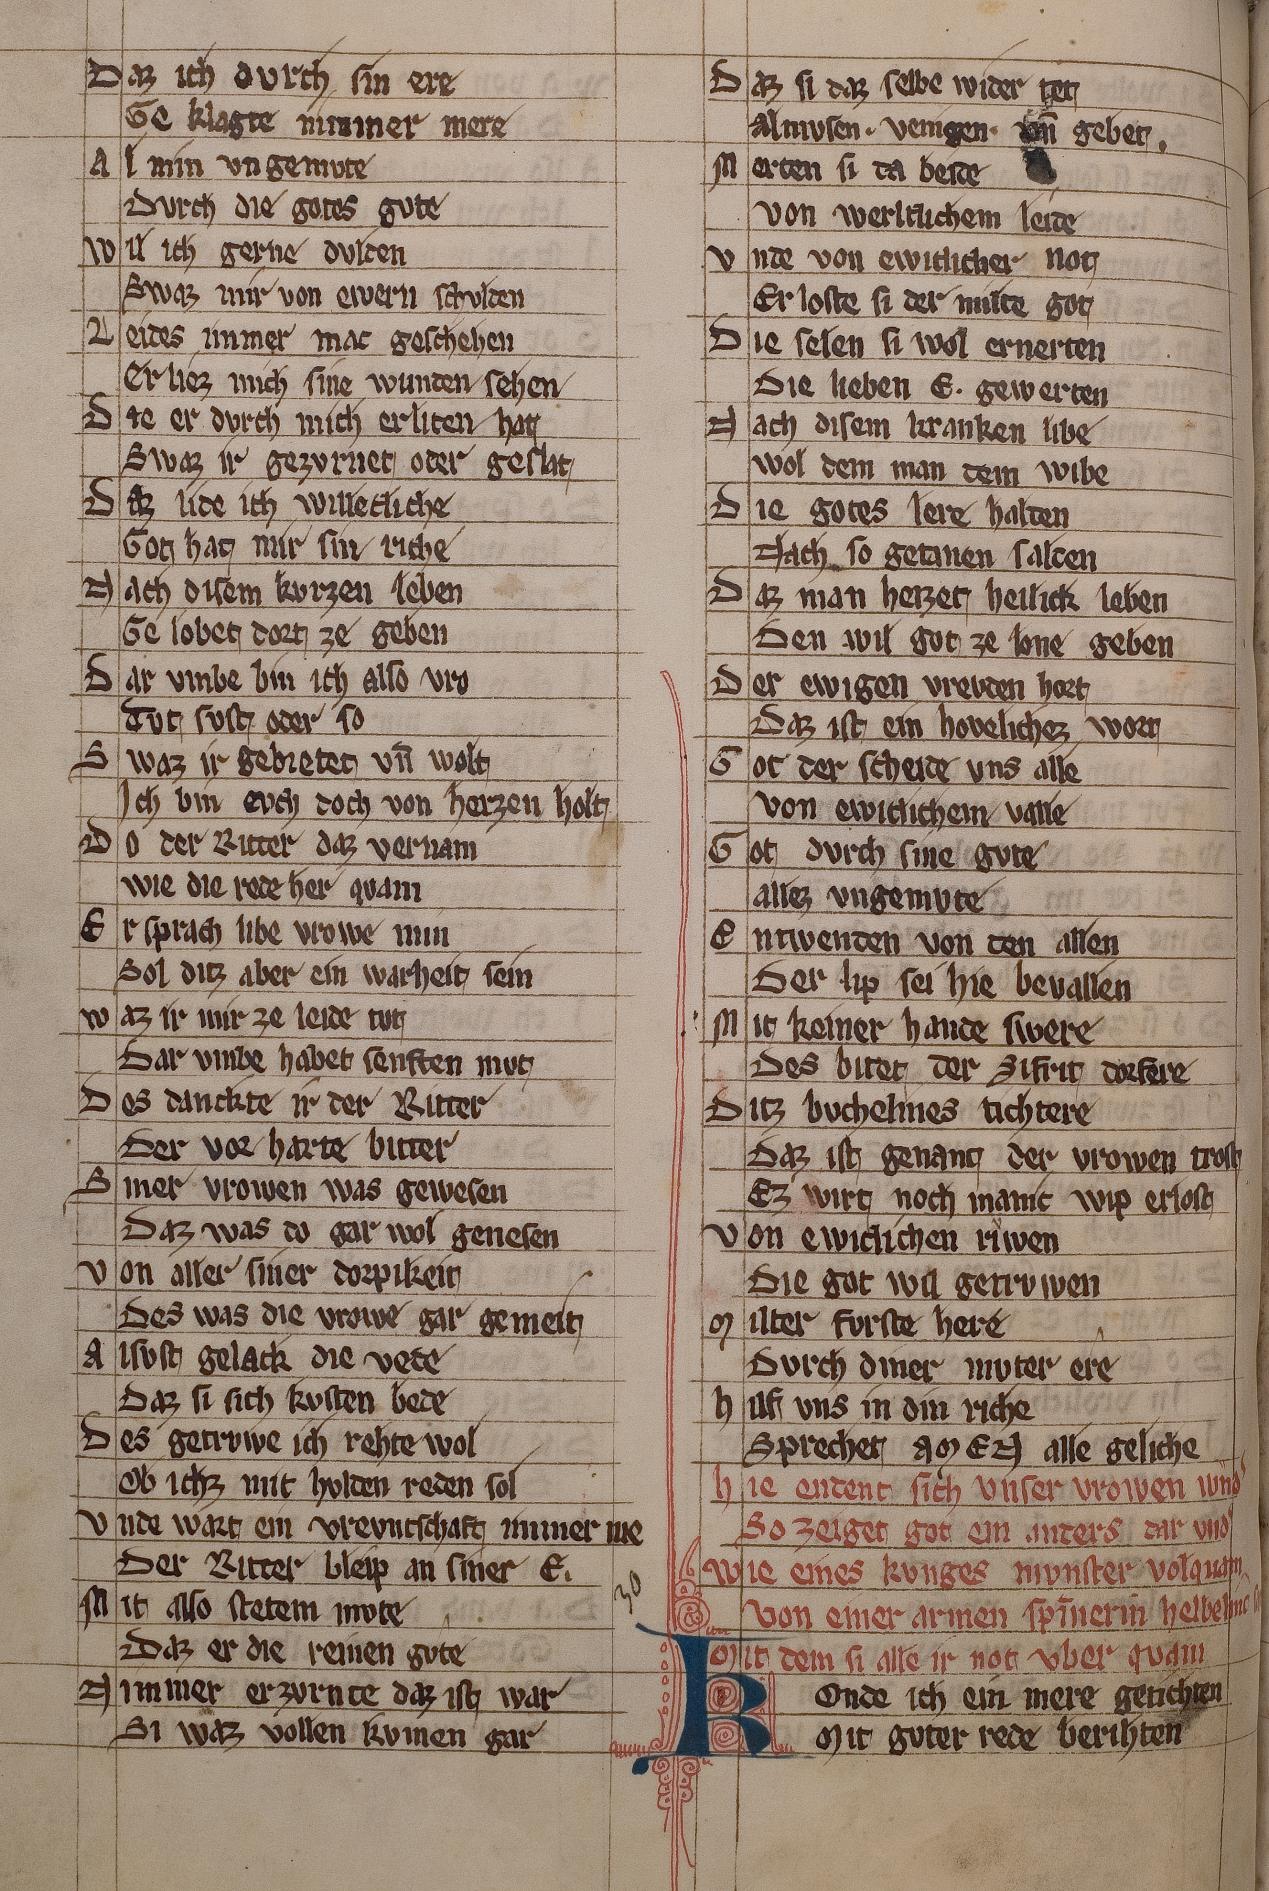 Daz ich dvrch sin ere
Ge klagte nimmer mere
Al min vngemvte
Dvrch die gotes gvte
Wil ich gerne dvlden
Swaz mir von ewern schvlden
Leides immer mac geschehen
Er liez mich sine wunden sehen
Die er dvrch mich erliten hat
Swaz ir gezvrnet oder geslat
Daz lide ich willecliche
Got hat mir sin riche
Nach disem kvrzen leben
Ge lobet dort ze geben
Dar vmbe bin ich also vro
Tvt svst oder so
Swaz ir gebietet vñ wolt
Ich bin evch doch von herzen holt
Do der Ritter daz vernam
wie die rede her quam
Er sprach libe vrowe min
Sol ditz aber ein warheit sein
waz ir mir ze leide tvt
Dar vmbe habet senften mvt
Des danckte ir der Ritter
Der vor harte bitter
Siner vrowen was gewesen
Daz was do gar wol genesen
von aller siner dorpikeit
Des was die vrowe gar gemeit
Alsvst gelack die vede
Daz si sich kvsten bede
Des getrvwe ich rehte wol
Ob ichz mit hvlden reden sol
vnde wart ein vrevntschaft immer me
Der Ritter bleip an siner E.
Mit also stetem mvte
Daz er die reinen gvte
Nimmer erzvrnte daz ist war
Si waz vollen kvmen gar
30
Daz si daz selbe wider tet
Almvsen. venigen. vñ gebet.
Merten si da beide
von werltlichem leide
vnde von ewiclicher not
Er loste si der milte got
Die selen si wol ernerten
Die lieben E. gewerten
Nach disem kranken libe
wol dem man dem wibe
Die gotes lere halden
Nach so getanen salden
Daz man heizet heilick leben
Den wil got ze lone geben
Der ewigen vrevden hort
Daz ist ein hovelichez wort
Got der scheide vns alle
von ewiclichem valle
Got dvrch sine gvte
allez vngemvte
Entwenden von den allen
Der lip sei hie bevallen
Mit keiner hande swere
Des bitet der Sifrit dorfere
Ditz bvchelines tichtere
Daz ist genant der vrowen trost
Ez wirt noch manic wip erlost
Von ewiclichen riwen
Die got wil getrvwen
Milter fvrste here
Dvrch diner mvter ere
hilf vns in din riche
Sprechet AMEN alle geliche
hie endent sich vnser vrowen
So zeiget got ein anders dar
Wie eines kvnges mvnster volquam
Von einer armen
Mit dem si alle ir not vber quam
Konde ich ein mere getichten
Mit gvter rede berihten